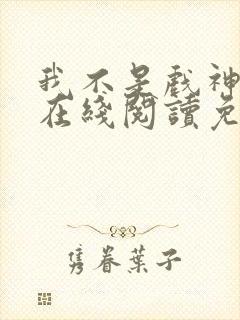 我不是戲神
在綫閱讀免
隽眷葉子